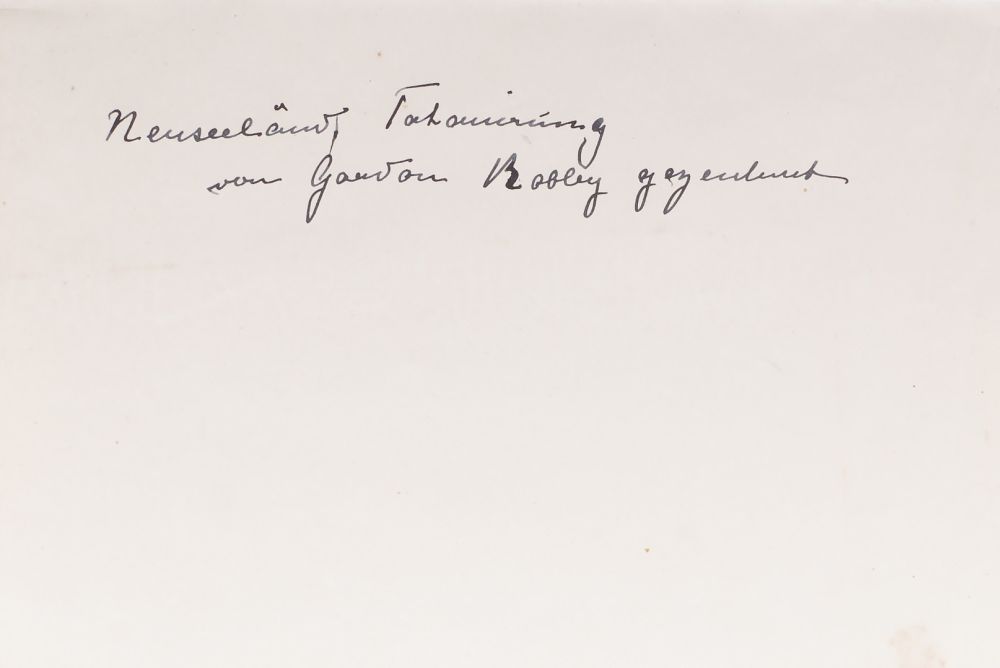 Neuseeländ. Tatauirung
von Gordon Robley gezeichnet